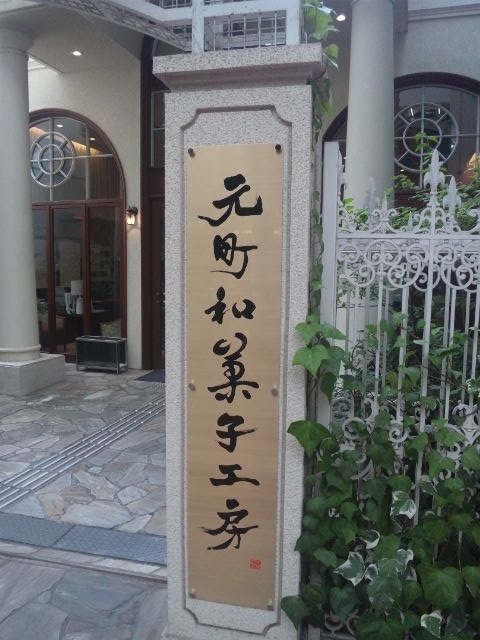 元町和菓子工房